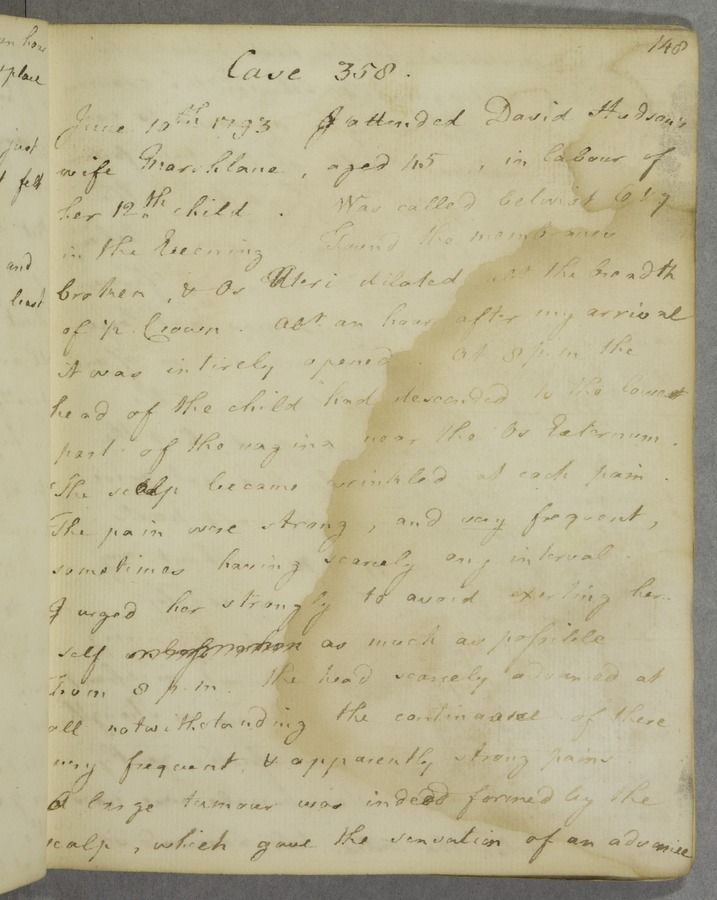 148
Case 358.
June 10th 1793 I attended David Hudson's
wife Marshlane, aged 45, in labour of
her 12th child. Was called betwixt 6 & 7
in the Evening Found the membranes
broken, & Os Uteri dilated to the breadth
of ½ Crown. Abt an hour after my arrival
it was intirely opened. At 8 p.m the
head of the child had descended to the lowest
part of the vagina near the Os Externum.
The scalp became wrinkled at each pain.
The pain were strong, and very frequent,
sometimes having scarcely any interval.
I urged her strongly to avoid exerting her-
self as much as possible
From 8 p.m. the head scarcely advanced at
all notwithstanding the continuance of these
very frequent & apparently strong pains
A large tumour was indeed formed by the
scalp, which gave the sensation of an advance
an hour
place
just
felt
and
least